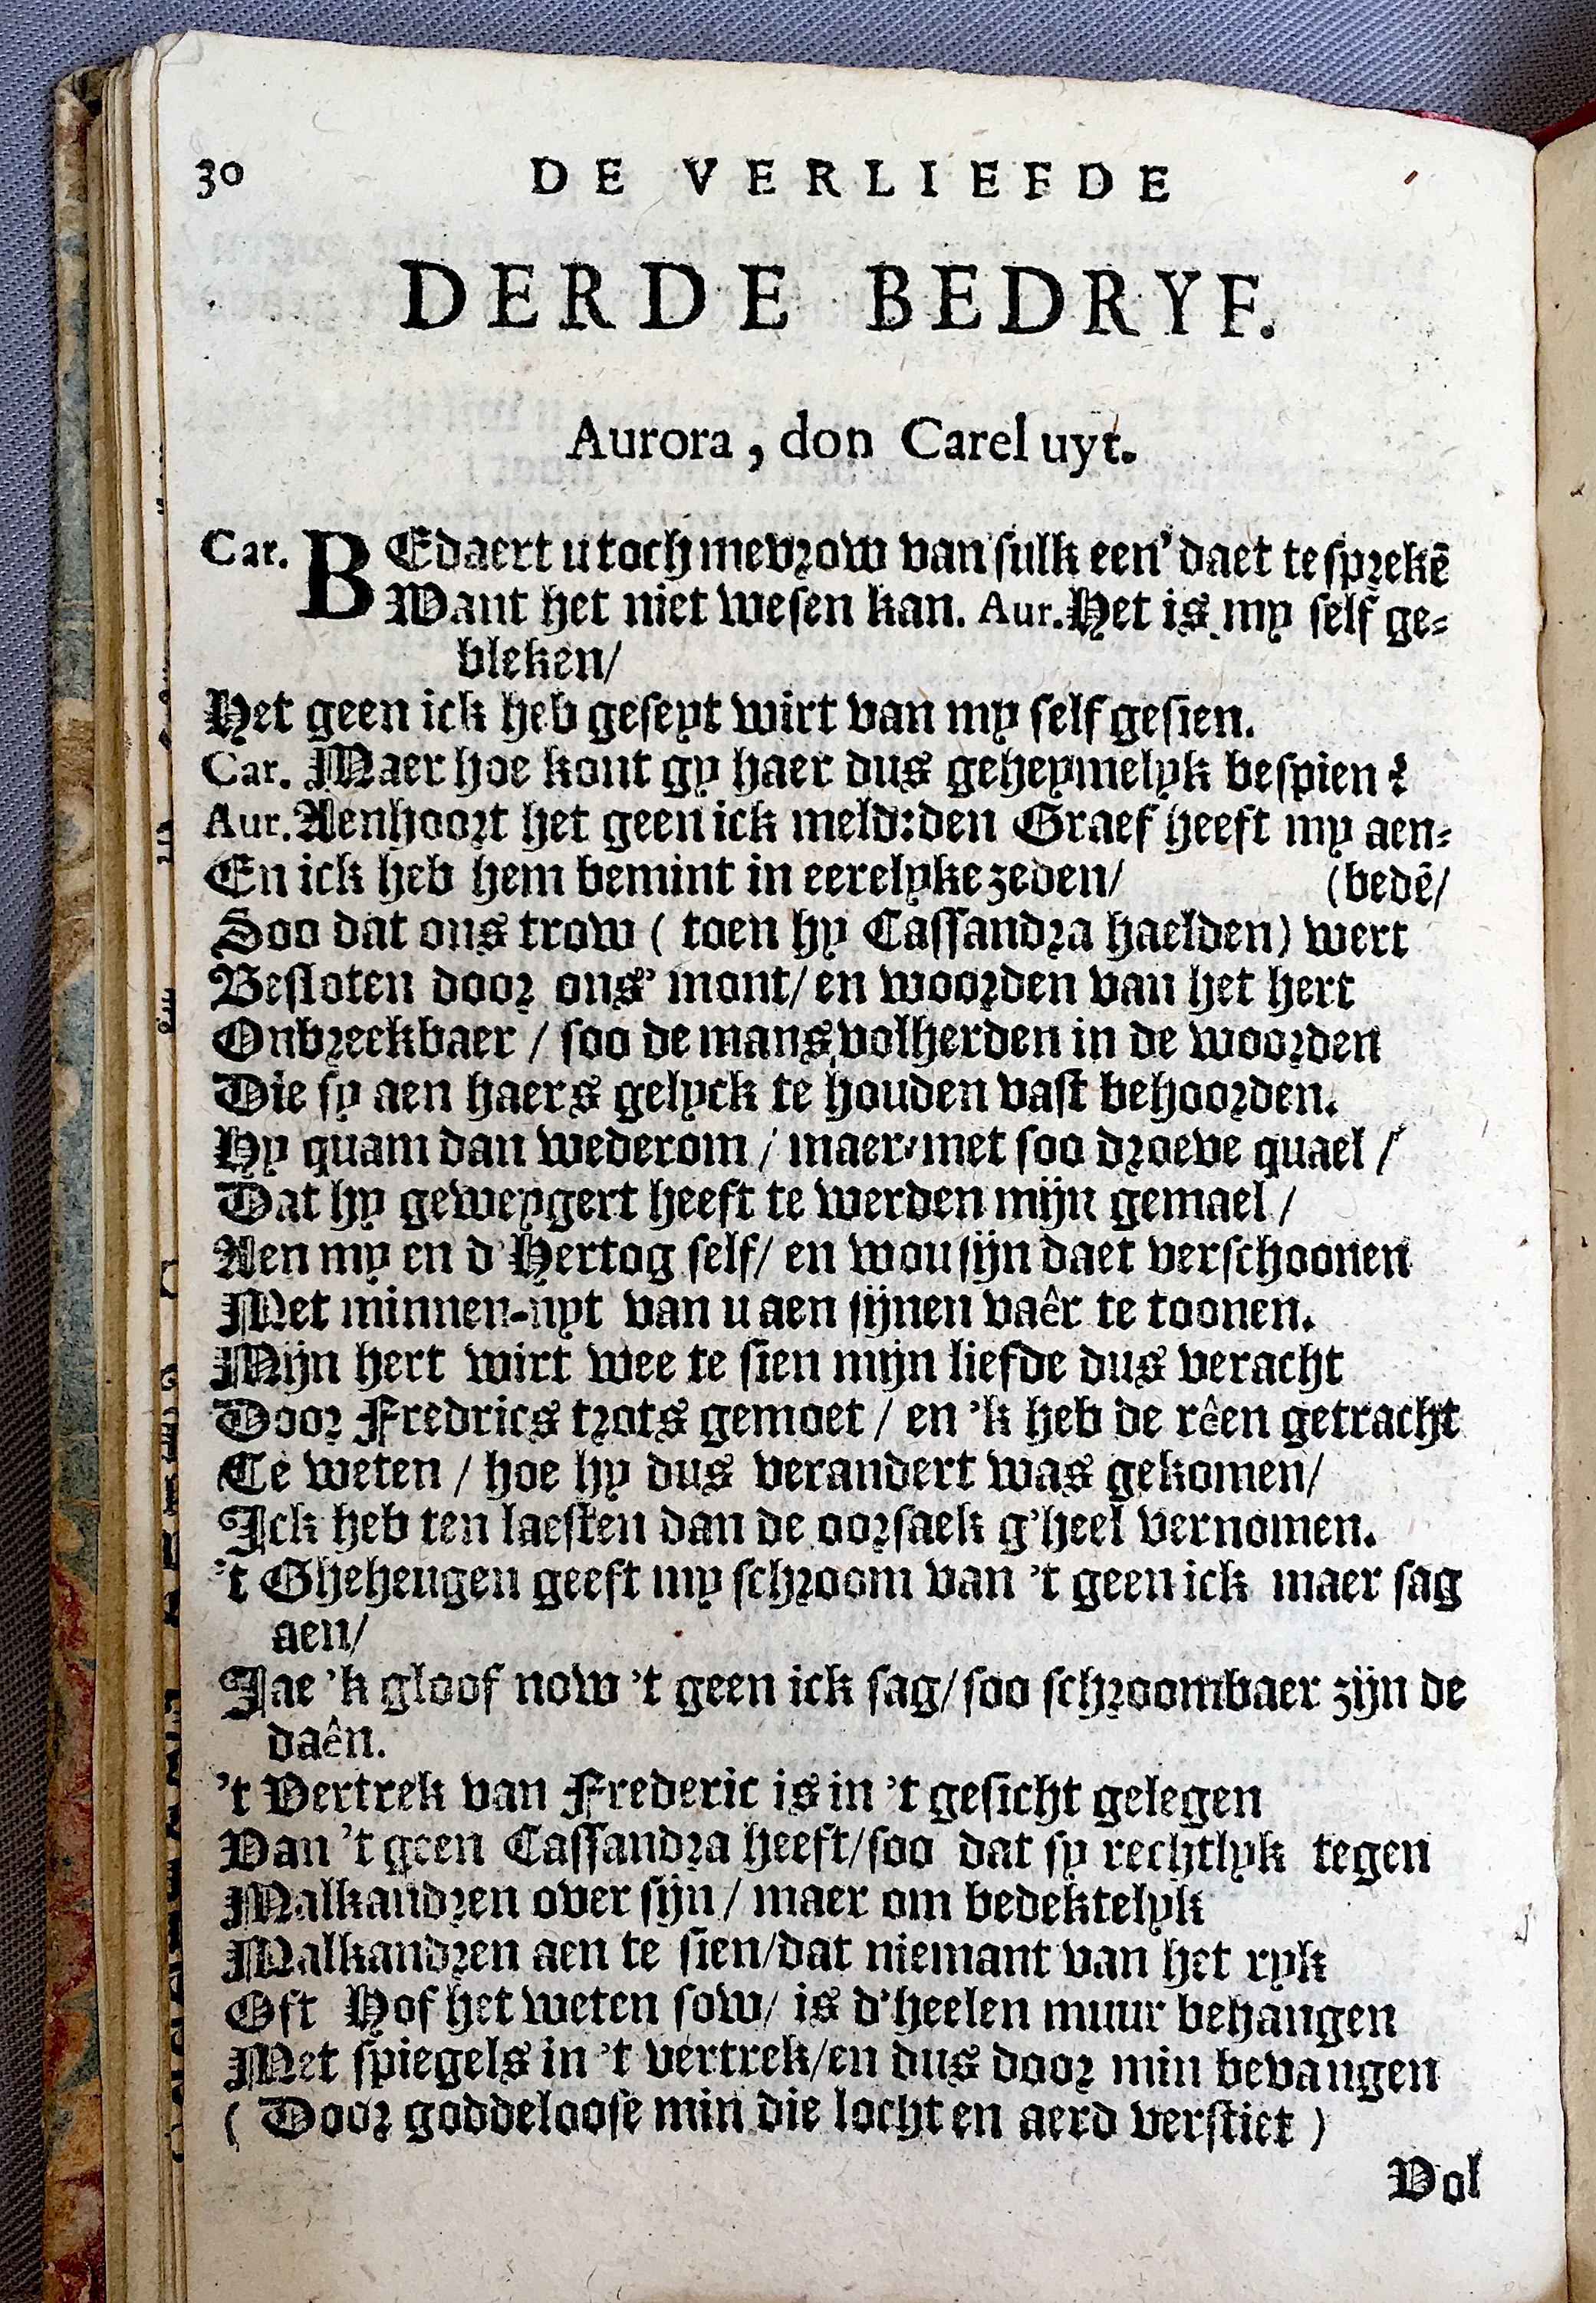 30 DE VERLIEFDE
DERDE BEDRYF.
Aurora, don Carel uyt.
Car. BEdaert u toch mevrow van sulk een' daet te sprekē
Want het niet wesen kan. Aur. Het is my self ge-
bleken/
Het geen ick heb geseyt wirt van my self gesien.
Car. Maer hoe kont gy haer dus geheymelyk bespien?
Aur. Aenhoort het geen ick meld: den Graef heeft my aen-
En ick heb hem bemint in eerelyke zeden/ (bedē/
Soo dat ons trow ( toen hy Cassandra haelden) wert
Besloten door ons' mont/ en woorden van het hert
Onbreckbaer / soo de mans volherden in de woorden
Die sy aen haers gelyck te houden vast behoorden.
Hy quam dan wederom / maer met soo droeve quael /
Dat hy geweygert heeft te werden mijn gemael /
Aen my en d'Hertog self/ en wou sijn daet verschoonen
Met minnen-nyt van u aen sijnen vaêr te toonen.
Mijn hert wirt wee te sien mijn liefde dus veracht
Door Fredrics trots gemoet / en 'k heb de rêen getracht
Te weten / hoe hy dus verandert was gekomen/
Ick heb ten laesten dan de oorsaek g'heel vernomen.
't Gheheugen geeft my schroom van 't geen ick maer sag
aen/
Jae 'k gloof now 't geen ick sag/ soo schroombaer zijn de
daên.
't Vertrek van Frederic is in 't gesicht gelegen
Van 't geen Cassandra heeft/ soo dat sy rechtlyk tegen
Malkandren over sijn / maer om bedektelyk
Malkandren aen te sien/ dat niemant van het ryk
Oft Hof het weten sow/ is d'heelen muur behangen
Met spiegels in 't vertrek/ en dus door min bevangen
( Door goddeloose min die locht en aerd verstiet )
Vol